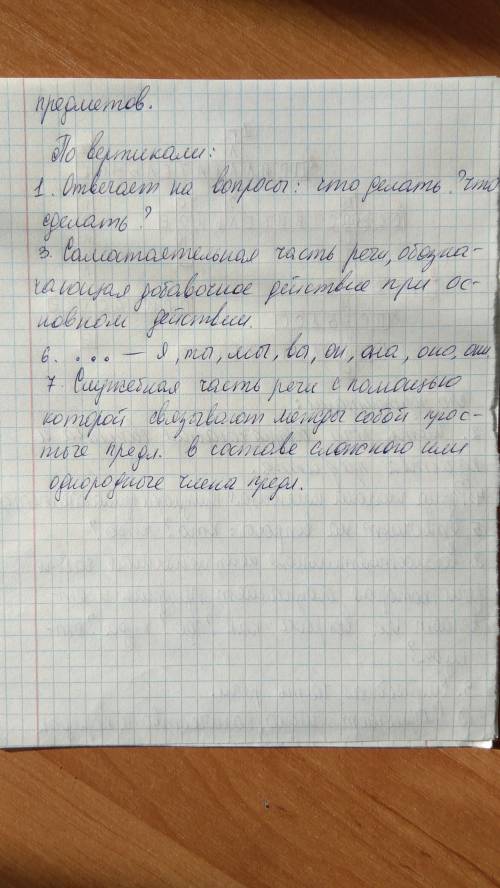 предметов.
По вертикали:
1. Отвечает на вопросы: что делать? что
сделать?
3. Самостоятельная часть речи, обозна-
чающая добавочное действие при ос-
новном действии.
6. ... – Я, ты, мы, вы, он, она, оно, они
7. Служебная часть речи с помощью
которой связывают между собой прос-
тые предл. в составе сложного или
однородные члена предл.